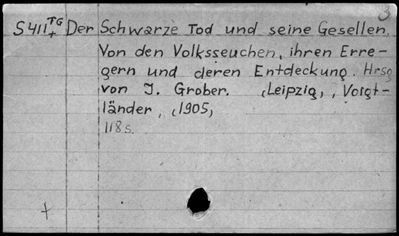 3
S411 TG+ Der Schwarze Tod und seine Gesellen.
Von den Volksseuchen, ihren Erre-
gern und deren Entdeckung. Hrsg
von J. Grober. (Leipzig,) Voigt-
länder, (1905)
118 s.
+